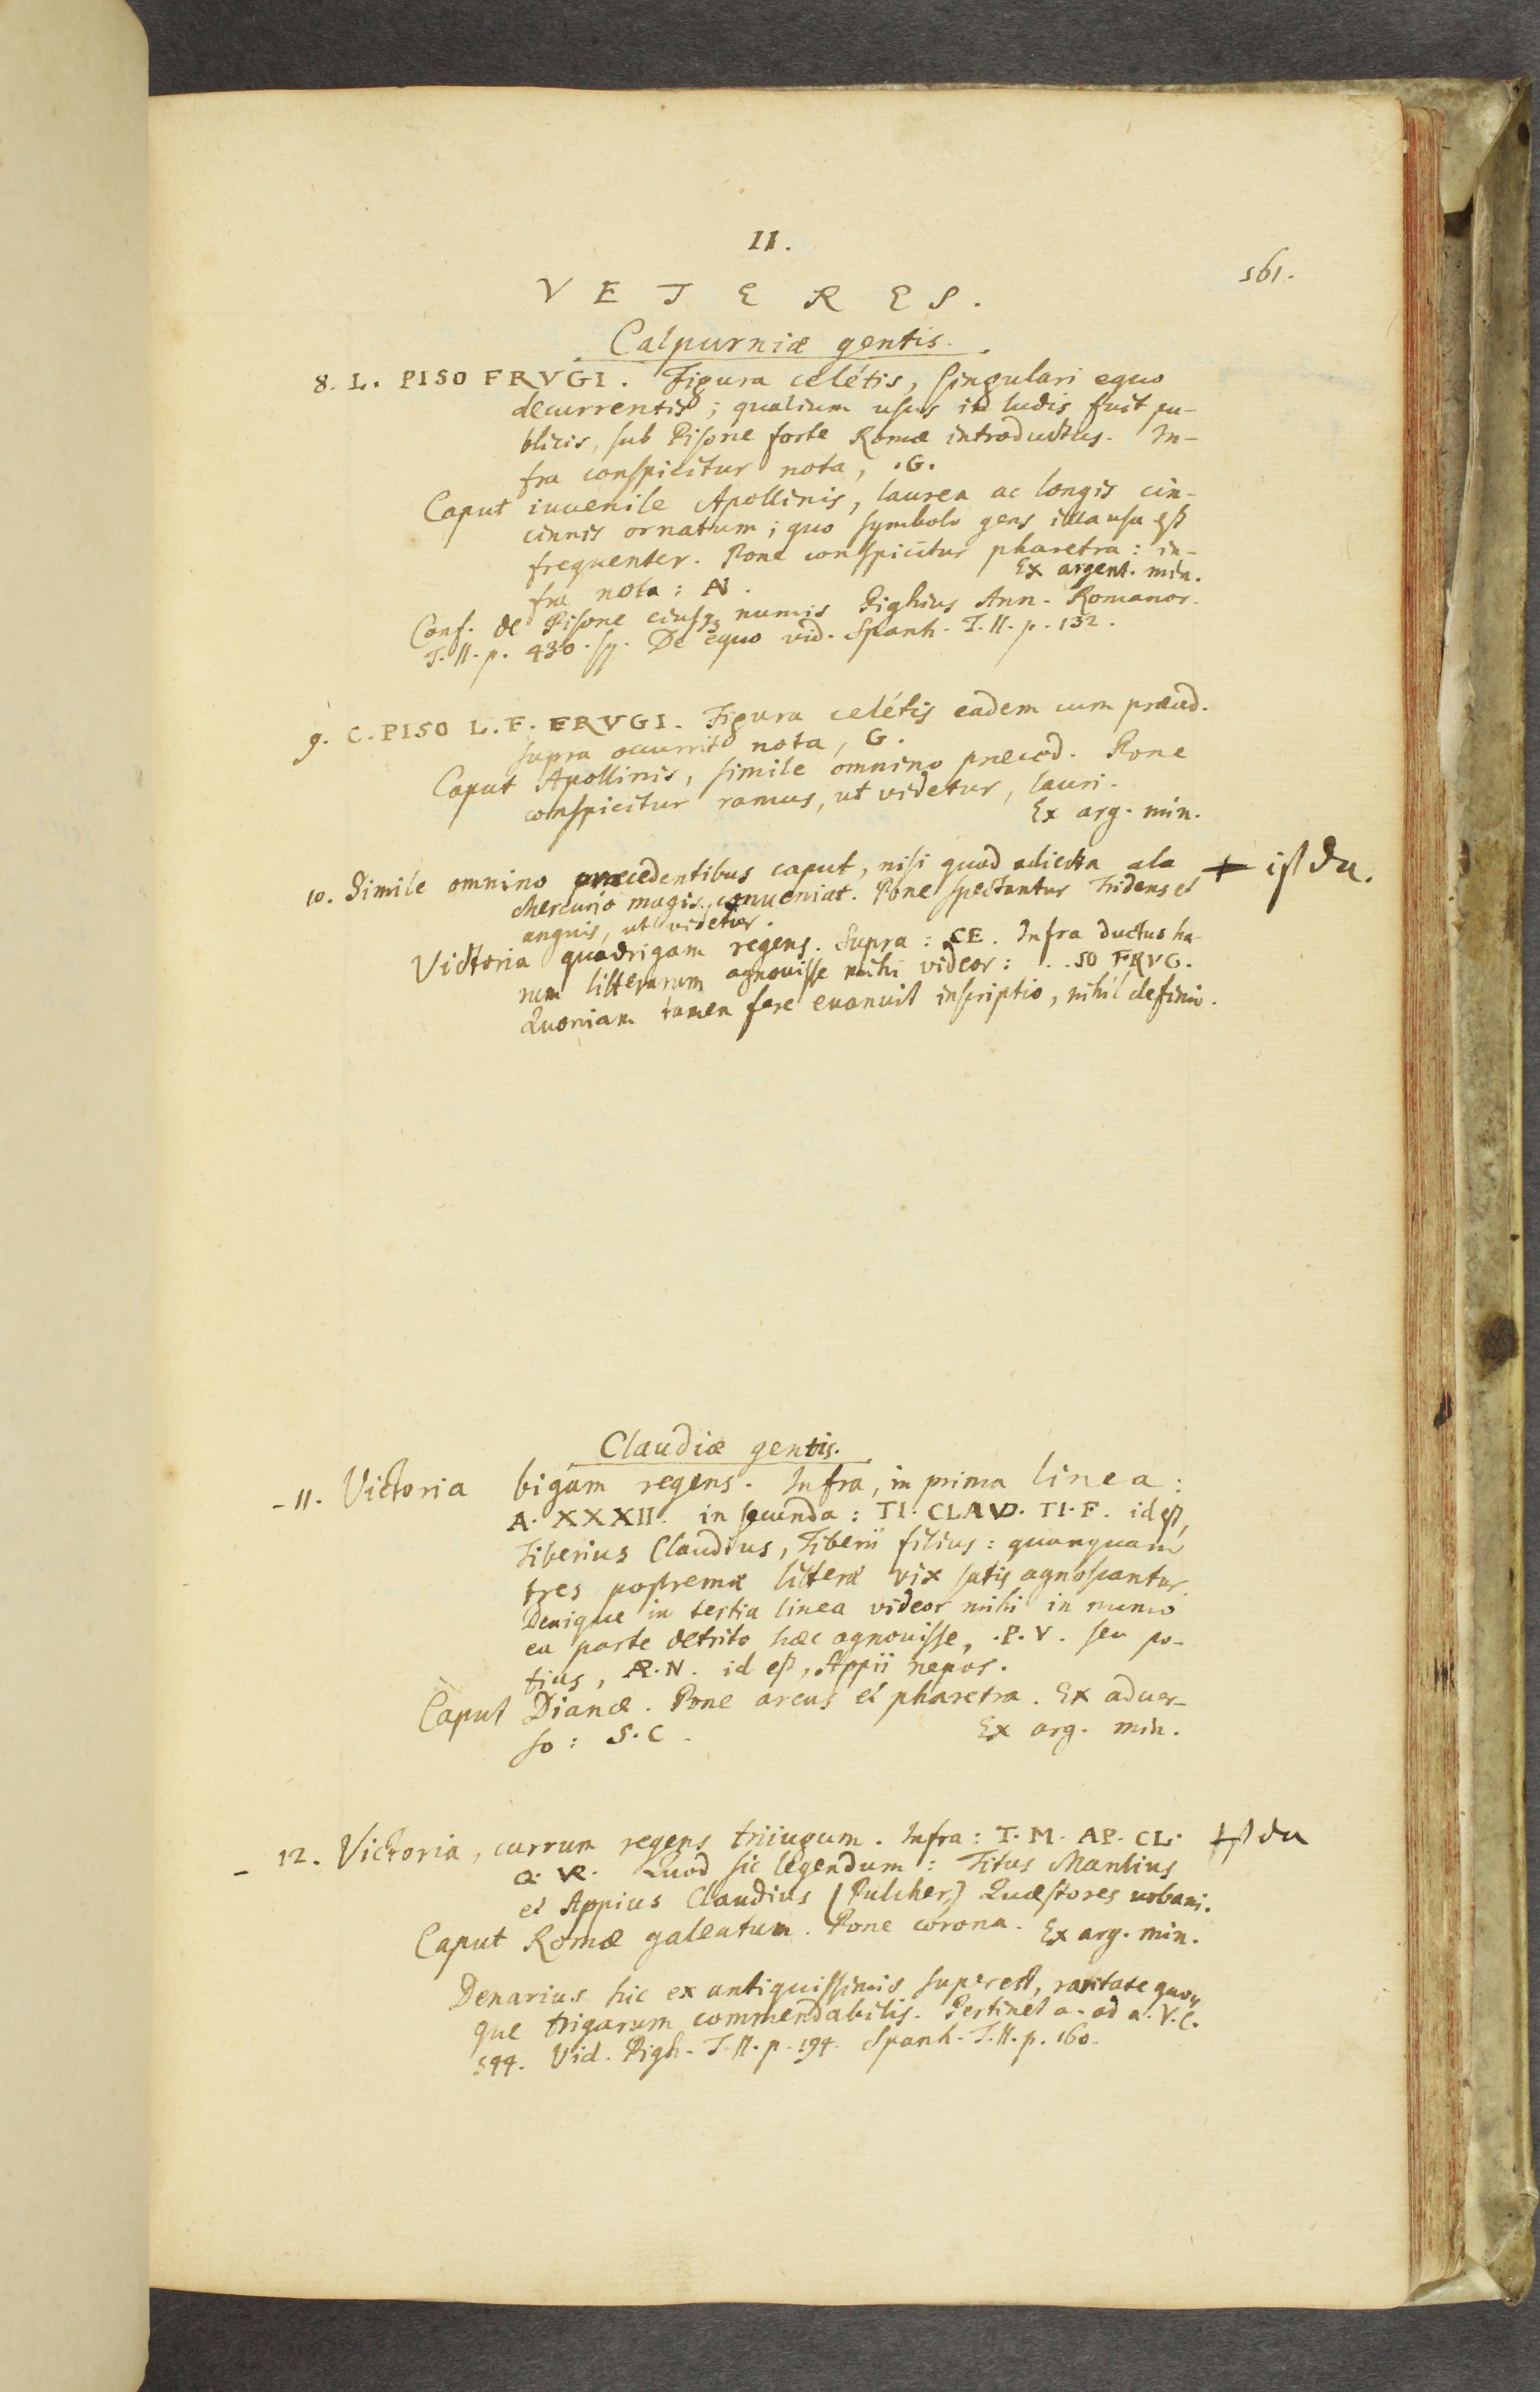 II.
561.
VETERES.
Calpurniæ gentis.
8. L. PISO FRVGI. Figura celétis, singulari equo
decurrentis; qualium usus in ludis fuit pu-
blicis, sub Pisone forte Romæ introductus. In-
fra conspicitur nota, .G.
Caput iuvenile Apollinis, laurea ac longis cin-
cinnis ornatum; quo symbolo gens illa usa est
frequenter. Pone conspicitur pharetra: in-
fra nota: N. Ex argent. min.
Conf. de Pisone eiusqz numis Pighius Ann. Romanor.
T. II. p. 430. sq. De equo vid. Spanh. T. II. p. 132.
9. C. PISO L. F. FRVGI. Figura celétis eadem cum præced.
supra occurrit nota, G.
Caput Apollinis, simile omnino præced. Pone
conspicitur ramus, ut videtur, lauri.
Ex arg. min.
10. Simile omnino præcedentibus caput, nisi quod adiecta ala + ist da.
Mercurio magis conueniat. Pone spectantur tridens et
anguis, ut videtur.
Victoria quadrigam regens. Supra: CE. Infra ductus ha-
rum litterarum agnouisse mihi videor: . . SO FRVG.
Quoniam tamen fere euanuit inscriptio, nihil definio.
Claudiæ gentis.
- 11. Victoria bigam regens. Infra, in prima linea:
A. XXXII. in secunda: TI. CLAVD. TI. F. id est,
Tiberius Claudius, Tiberii filius: quanquam
tres postremæ litteræ vix satis agnoscantur.
Denique in tertia linea videor mihi in numo
ea parte detrito hæc agnouisse, .P. V. seu po-
tius, AP. N. id est, Appii nepos.
Caput Dianæ. Pone arcus et pharetra. Ex aduer-
so: S. C. Ex arg. min.
- 12. Victoria, currum regens triiugum. Infra: T. M. AP. CL. + ist da
Q. VR. Quod sic legendum: Titus Manlius
et Appius Claudius (Pulcher) Quæstores urbani.
Caput Romæ galeatum. Pone corona. Ex arg. min.
Denarius hic ex antiquissimis superest, raritate quo-
que trigarum commendabilis. Pertinet a. ad a. V. C.
544. Vid. Pigh. T. II. p. 194. Spanh. T. II. p. 160.